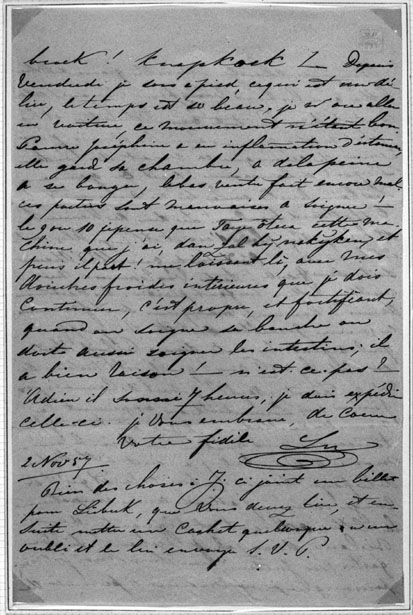 brock! Knapkock! — Depuis
Vendredi je sors à pied, ce qui est un dé-
lice, le temps est si beau, je vais aller
en voiture, ce mouvement n'étant bon.
Pauvre Joséphine a eu inflammation d'estomac,
elle garde sa chambre, a de la peine
à se bouger, le bas ventre fait encore mal,
ces parties sont mauvaises à soigner! —
le 9 ou 10 je pense que Tay ôtera cette ma-
chine que j'ai, dans
puis il part! me laissant là, avec mes
douches froides intérieures que je dois
continuer, c'est propre, et fortifiant,
quand on soigne sa bouche on
doit aussi soigner les intestins; il
a bien raison! — n'est-ce-pas?
Adieu il sonne 7 heures, je dois expédier
celle-ci. je vous embrasse, de Coeur
Votre fidèle
2 Nov 57.
Bien des choses à J. ci joint un billet
pour que vous devez lire, et en-
suite mettre un Cachet quelconque
oublié et le lui envoyer S. V. P.